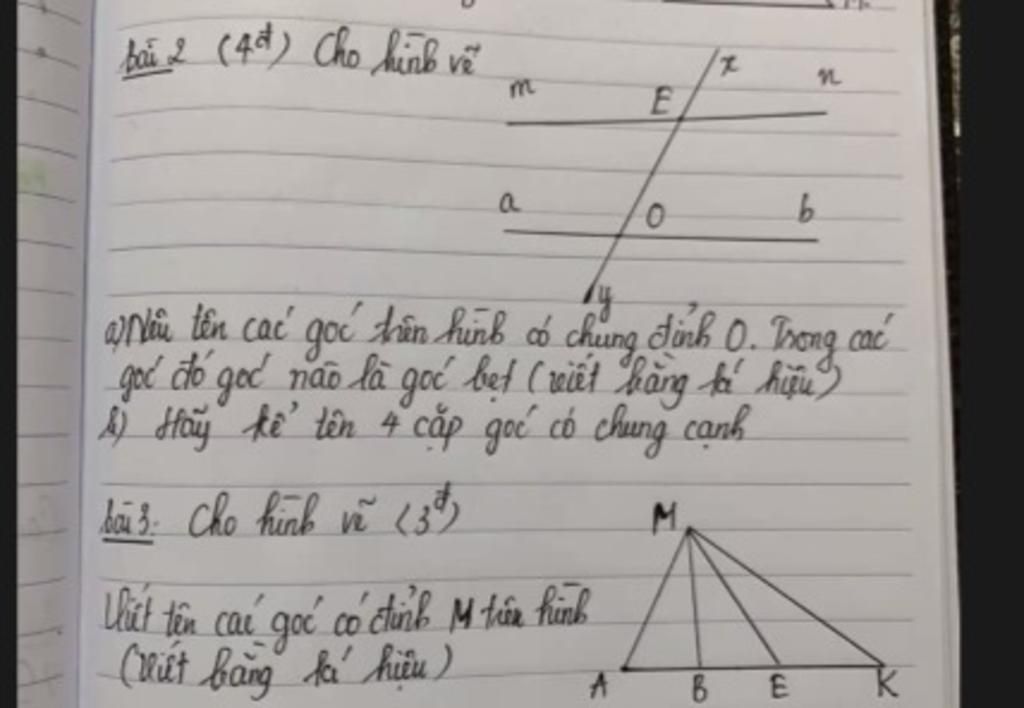 bài 2 (4đ) Cho hình vẽ
x
m
n
E
a
O
b
y
a) Nêu tên các góc trên hình có chung đỉnh O. Trong các
góc đó góc nào là góc bẹt (viết bằng kí hiệu)
b) Hãy kể tên 4 cặp góc có chung cạnh
bài 3: Cho hình vẽ (3đ)
M
Viết tên các góc có đỉnh M trên hình
(viết bằng kí hiệu)
A B E K